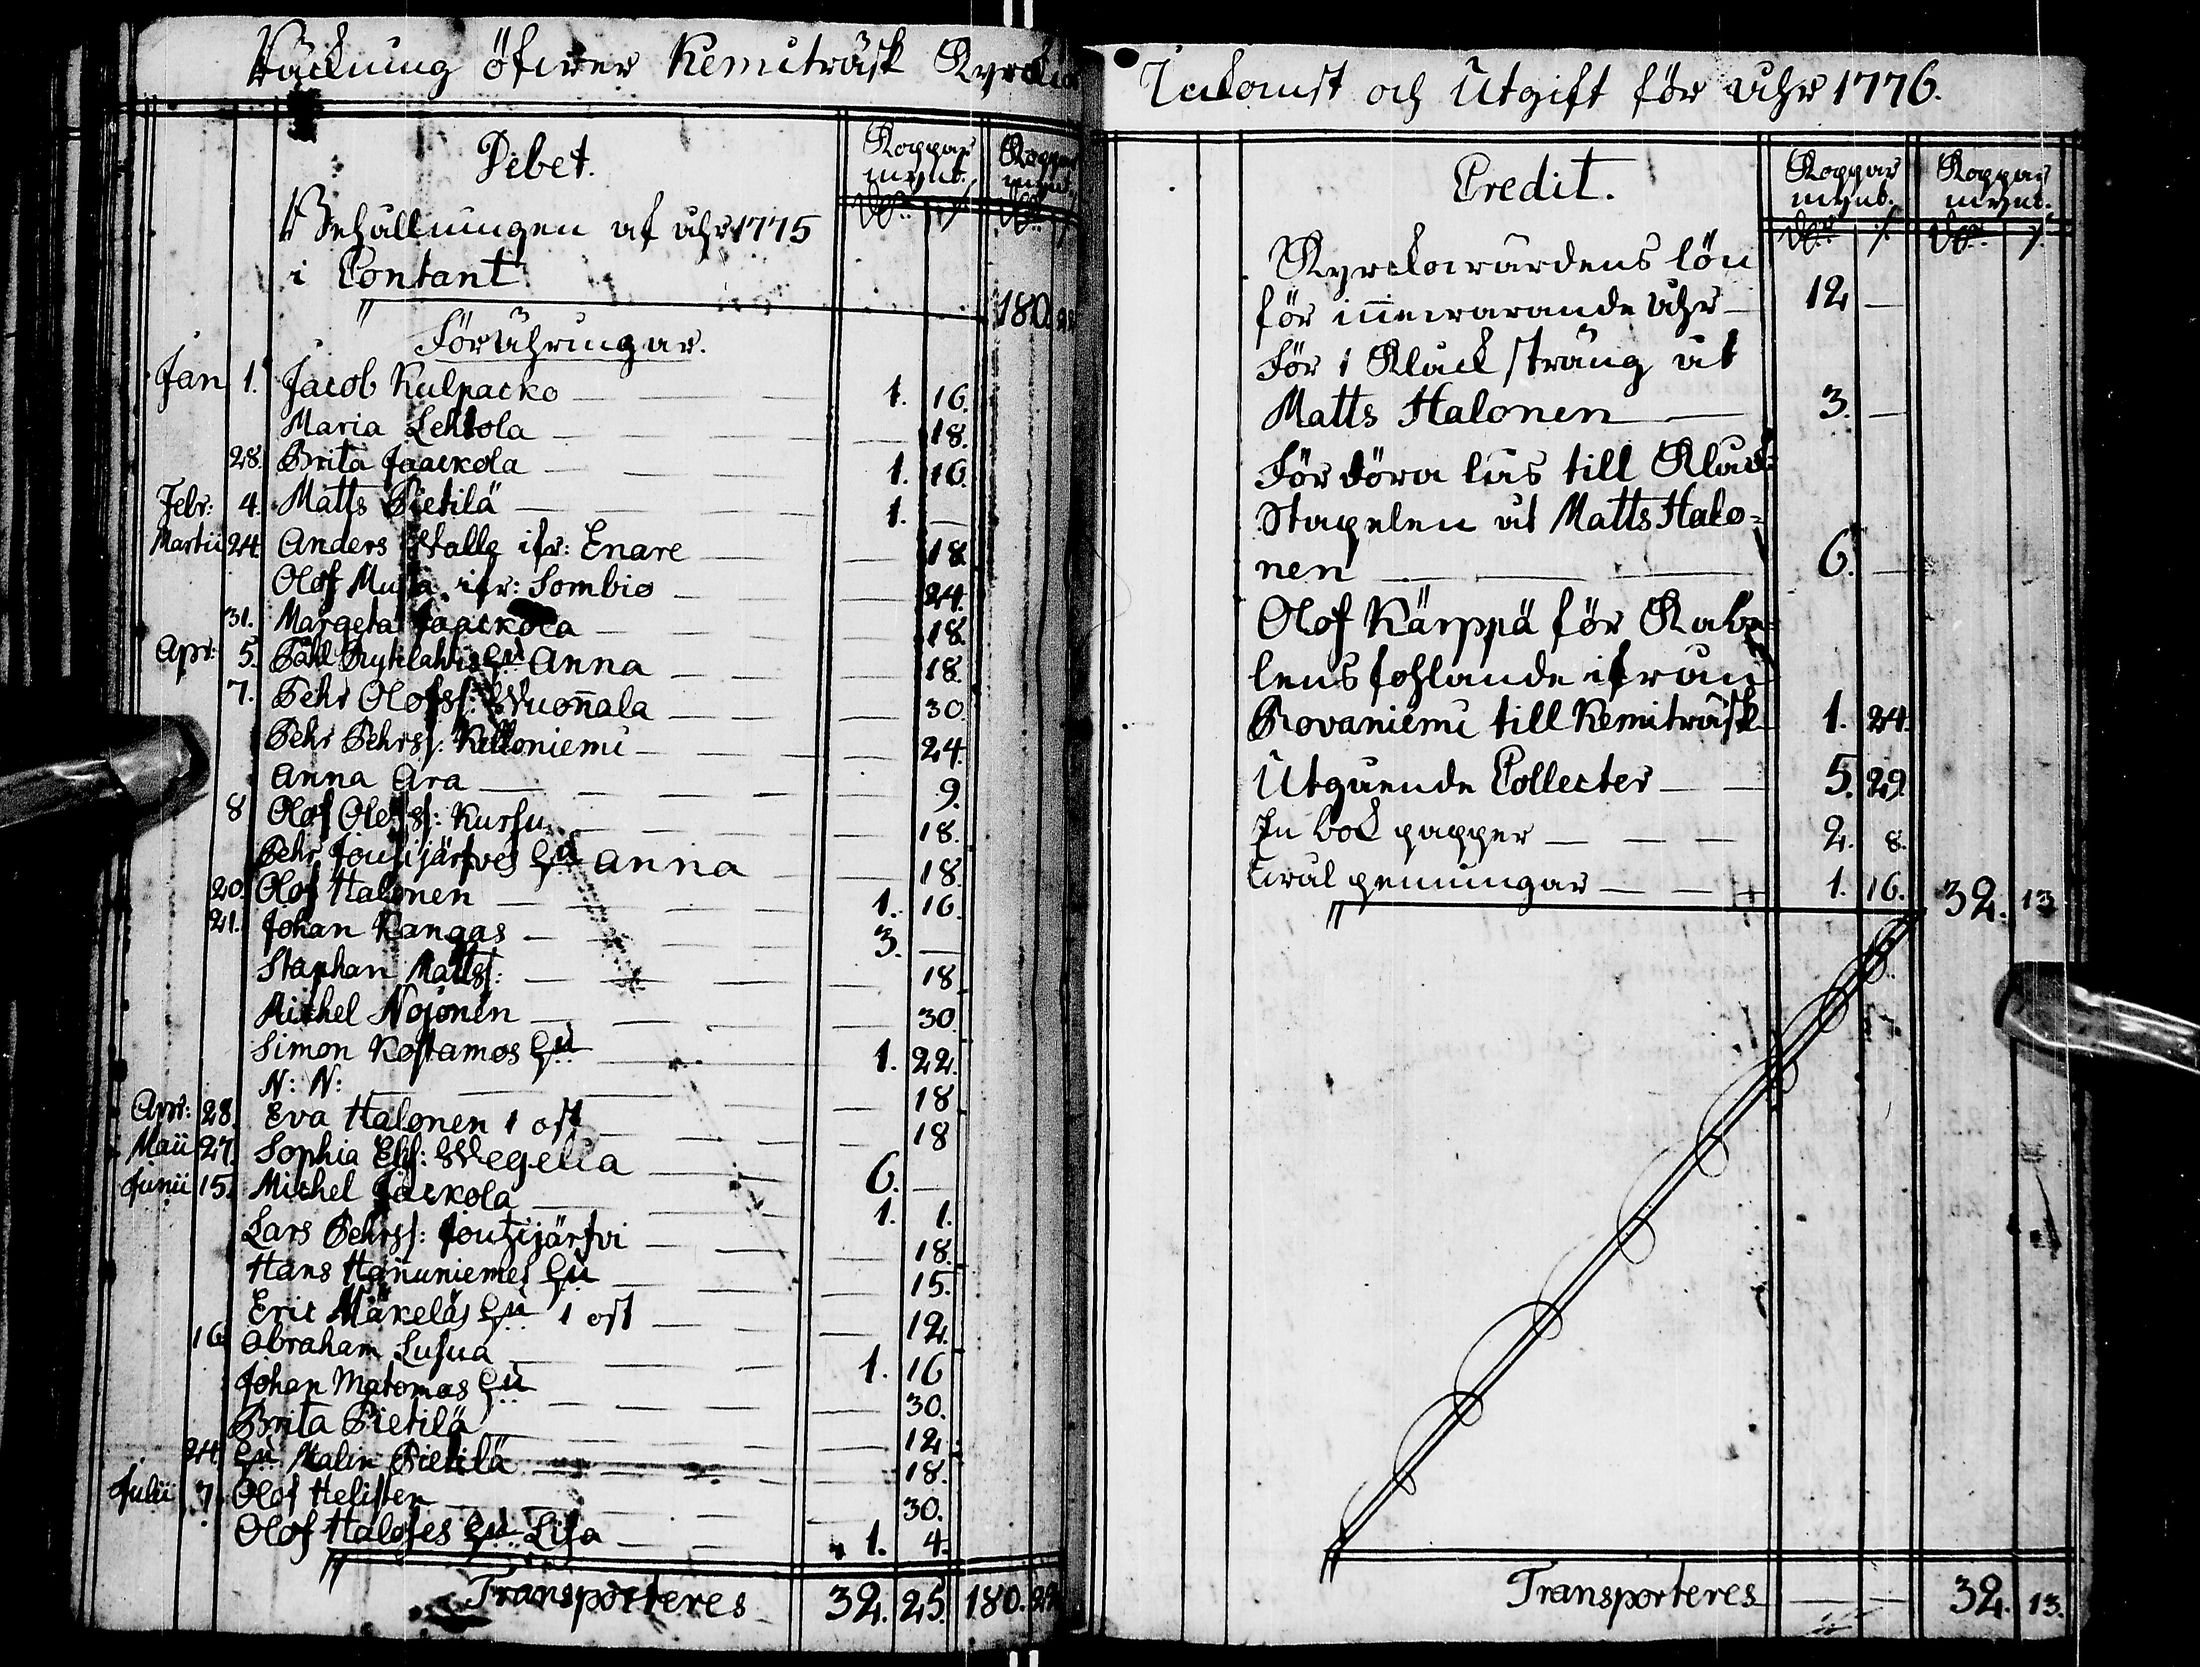 Räckning öfwer Kemiträsk Kyrckio
Debet.
Koppar
mynt.
Koppar
mynt.
Dlr
Behållningen af åhr 1775
i Contant
180.
Förähringar.
Jan 1. Jacob Kulpacko — 1. 16.
Maria Lehtola — 18.
28. Brita Jaackola — 1. 16.
Febr: 4. Matts Pietilä — 1. —
Martii 24 Anders Walle ifr: Enare — 18
Olof Musta ifr: Sombio — 24.
31. Margeta Jaackola — 18
Apr: 5. Påhl Rytilahtis hu Anna — 18.
7. Pehr Olofss: Wuoñala — 30
Pehr Pehrss: Kelloniemi — 24.
Anna Ara — 9.
8 Olof Olofss: Kursu — 18.
Pehr Jouzijärfves hu Anna — 18.
20. Olof Halonen — 1. 16.
21. Johan Kangas — 3. —
Staphan Mattss: — 18
Michel Nojonen — 30.
Simon Kostamos hu — 1. 22.
N: N: — 18
Apr: 28. Eva Halonen 1 ost — 18
Maii 27. Sophia Elis: Wegelia — 6. —
Junii 15. Michel Jackola — 1. 1.
Lars Pehrss: Jouzijärfvi — 18.
Hans Hañuniemes hu — 15.
Eric Mäkeläs hu 1 ost — 12.
16 Abraham Lusua — 1. 16
Johan Matomas hu — 30.
Brita Pietilä — 12.
24 hu Malin Pietilä — 18.
Julii 7. Olof Helisten — 30.
Olof Halofes hu Lisa — 1. 4.
Transporteres 32. 25. 180.
Inkomst och Utgift för åhr 1776.
Credit.
Koppar
mynt.
Koppar
mynt.
Dlr
Kyrckowärdens lön
för iñewarande åhr — 12 —
För 1 Klåck sträng åt
Matts Halonen — 3. —
För döra lås till Klåck
Stapelen åt Matts Halo=
nen — 6. —
Olof Kärppä för Kabe
lens fohlande ifrån
Rovaniemi till Kemiträsk 1. 24.
Utgående Collecter — 5. 29
En bok papper — 2. 8.
Qwal penningar — 1. 16. 32. 13
Transporteres — 32. 13.